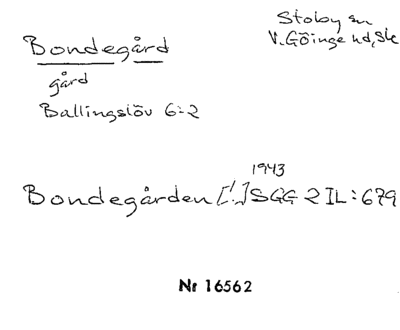 Bondegård
Stoby sn
V. Göinge hd, Sk
gård
Ballingslöv 6:2
1943
Bondegården [!] SGG 2 IL:679
Nr 16562